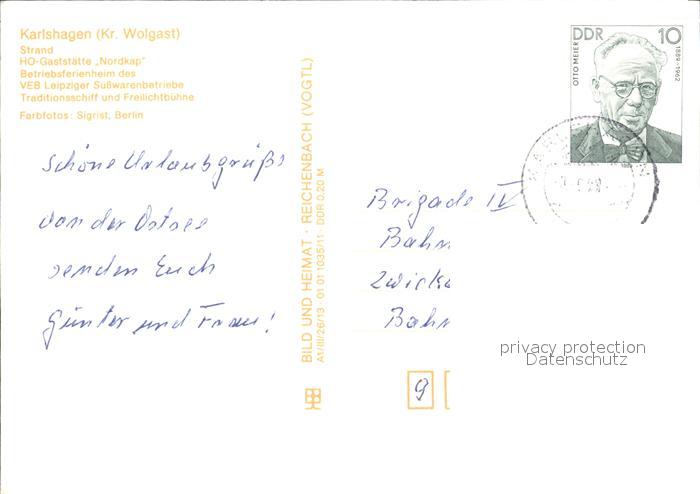 Karlshagen (Kr. Wolgast)
Strand
HO-Gaststätte „Nordkap"
Betriebsferienheim des
VEB Leipziger Süßwarenbetriebe
Traditionsschiff und Freilichtbühne
Farbfotos: Sigrist, Berlin
Schöne Urlaubsgrüße
von der Ostsee
senden Euch
Günter und Frau!
BILD UND HEIMAT · REICHENBACH (VOGTL)
A1/III/26/13 · 01 01 1035/11 · DDR 0,20 M
DDR 10
OTTO MEIER
1889-1962
Brigade IV
Bahn
Zwicka
Bahn
9
privacy protection
Datenschutz